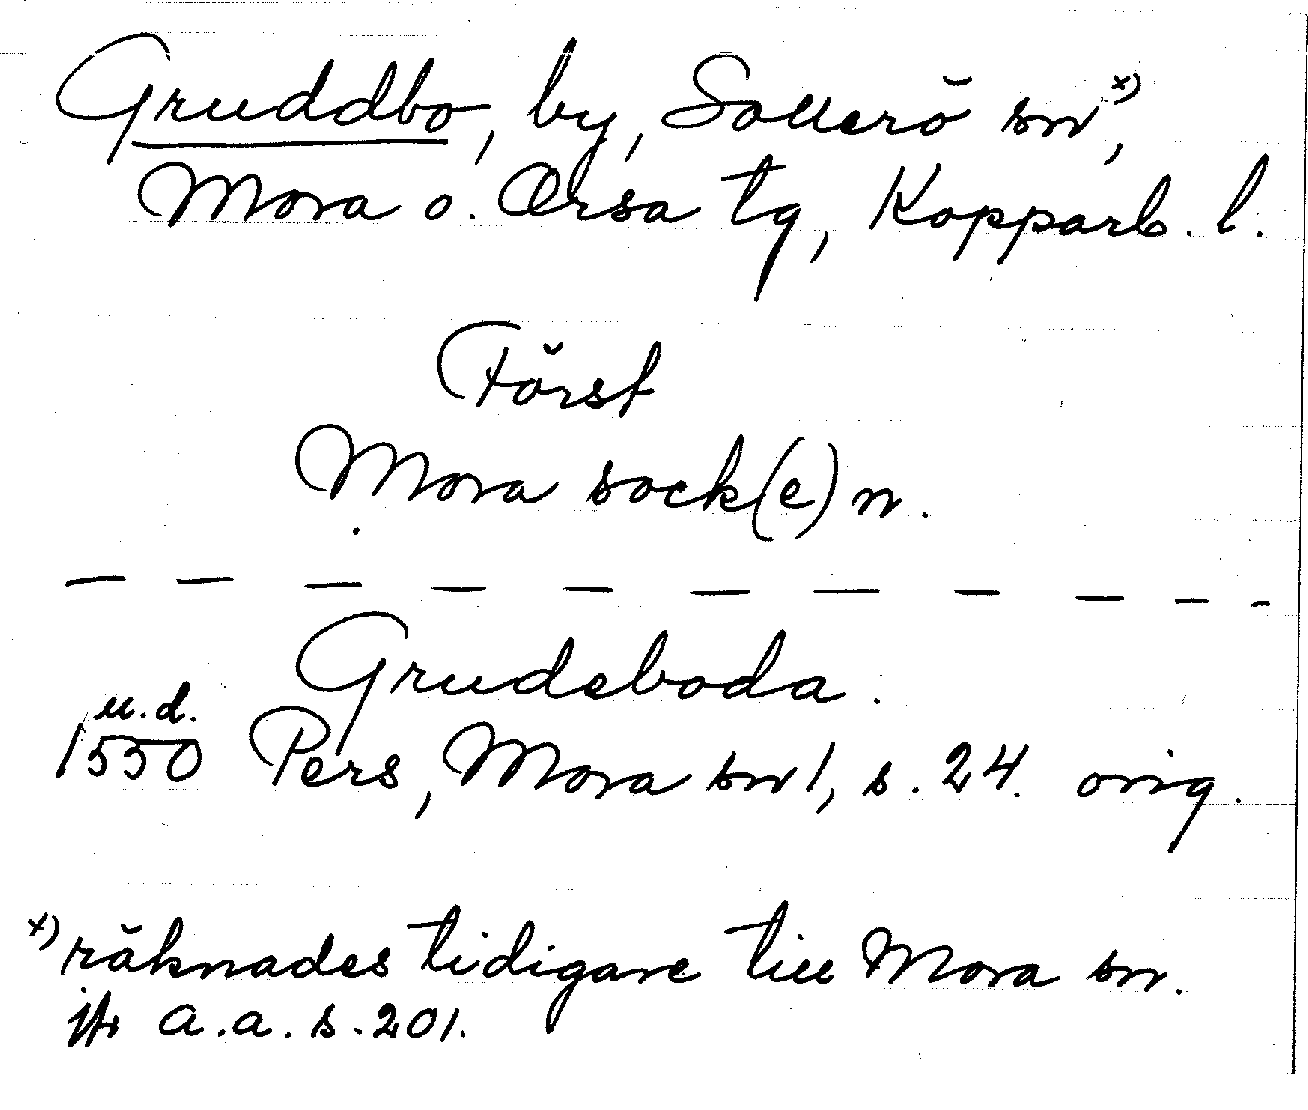 Gruddbo, by, Sollerö sn x),
Mora o. Orsa tg, Kopparb. l.
Först
Mora sock(e)n.
Grudeboda.
u.d.
1550 Pers, Mora sn 1, s. 24. orig.
x) räknades tidigare till Mora sn.
jfr a.a. s. 201.